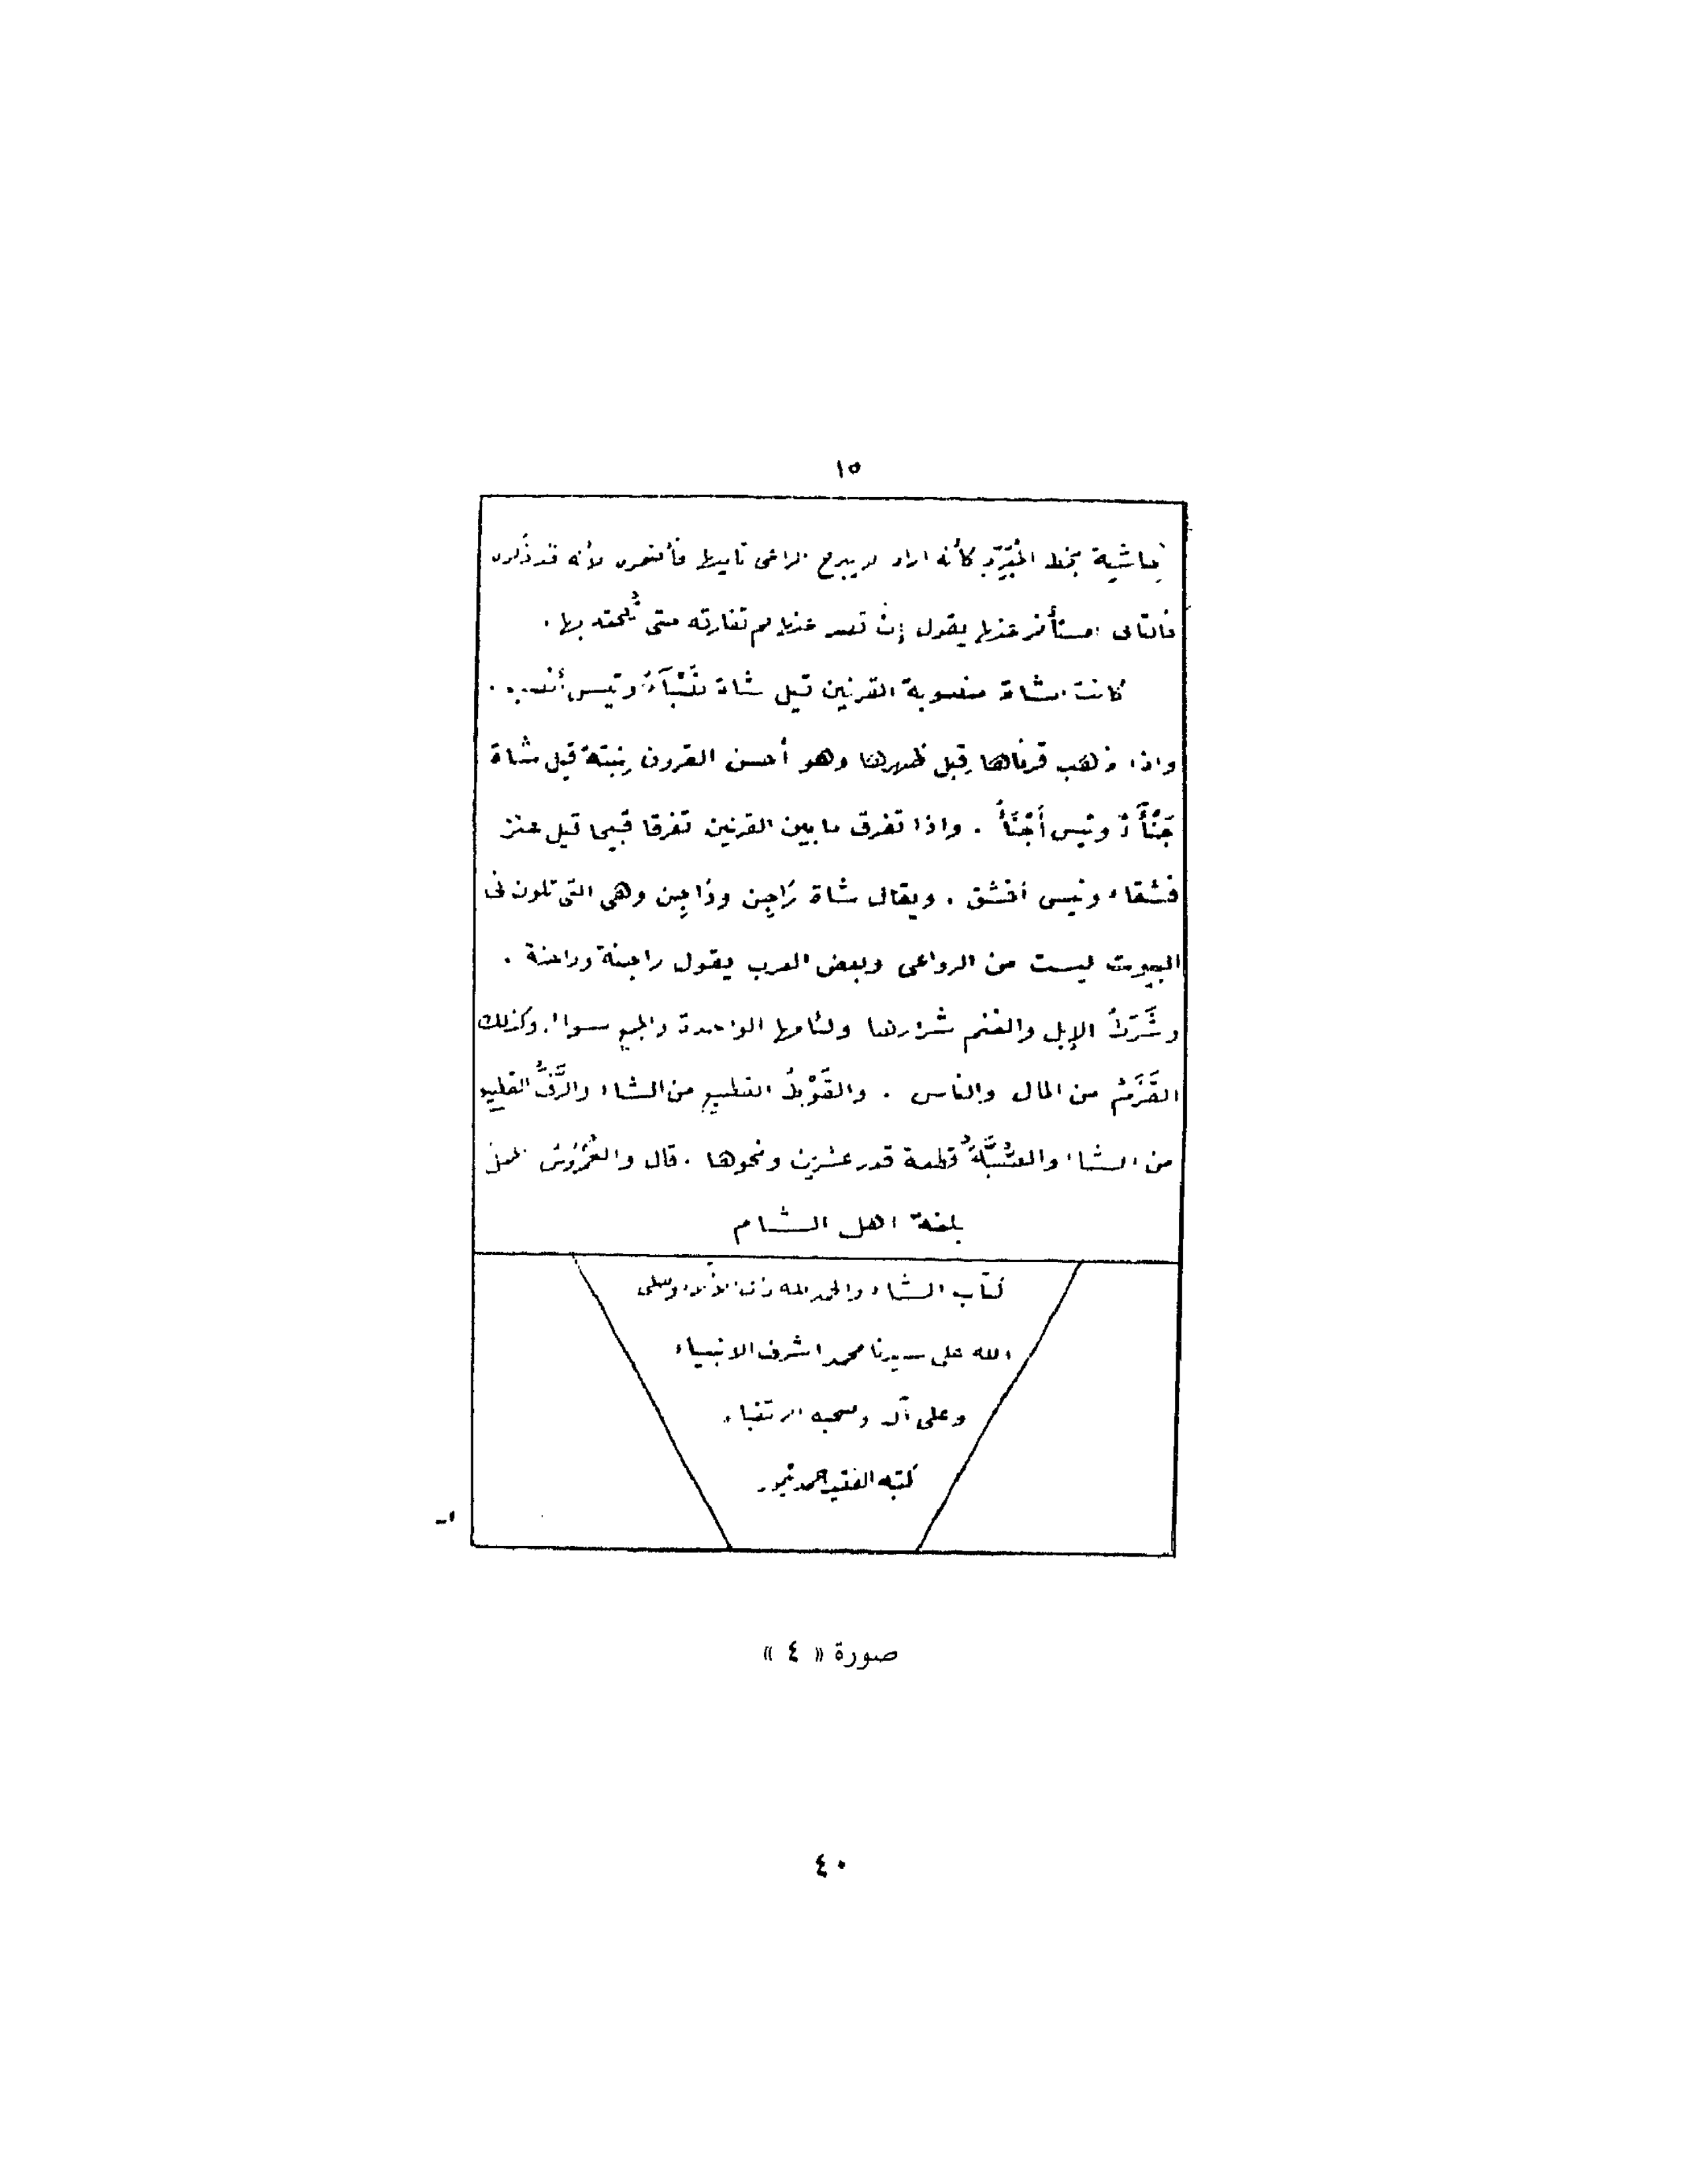 ١٥
بحاشية بخط المُبَرِّد كأنه اراد لا يبرح الراعى تاليها لأنه قد ذكره
فالتالى المستأخر عنها يقول إن تصد عنها لم تفارقه حتى يُلحقه بها .
كانت الشاة منصوبة القرنين قيل شاة نَصْبَآءُ وتيس أنصب .
واذا ذهب قرناها قِبل ظهرها وهو أحسن القرون نِبتةً قيل شاة
جَنْآءُ وتيس أَجْنَأُ . واذا تفرق ما بين القرنين تفرقا قبيحا قيل عنز
فشقاء وتيس افشق . ويقال شاة رَاجِن ودَاجِن وهى التى تكون فى
البيوت ليست من الرواعى وبعض العرب يقول راجنة وداجنة .
وشَرَطُ الإبل والغنم شرارها ولئامها الواحدة والجميع سواا. وكذلك
القَزَمُ من المال والناس . والقَوْطُ القطيع من الشاء والرَّفُّ القطيع
من الشاء والصُّبَّةُ قطعة قدر عشرين ونحوها . قال والعُمْرُوسُ الحمل
بلغة اهل الشام
كتاب الشاء والحمد لله وصلى
الله على سيدنا محمد اشرف الانبياء
وعلى آله وصحبه الاتقياء
كتبه الفقير احمد تيمور
صورة « ٤ »
٤٠